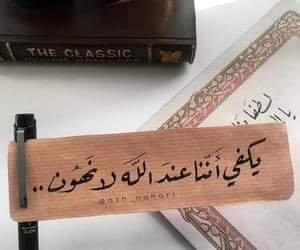 THE CLASSIC
يكفي أننا عند الله لا نهون ..
@azh_nahari